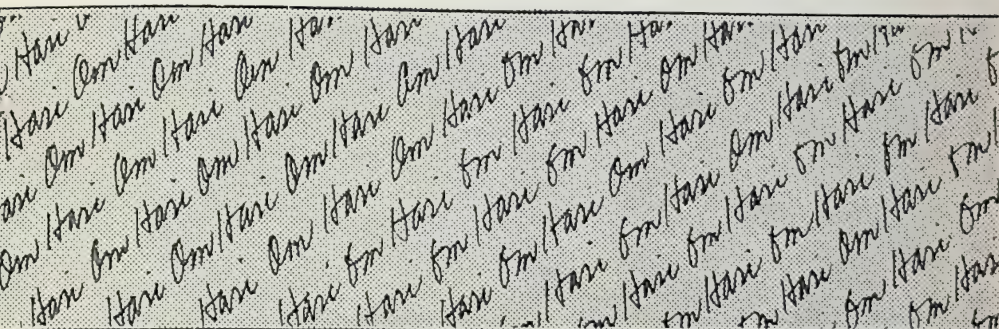 Hari
Hari Om Hari
Om Hari Om Hari
Om Hari Om Hari Om
Hari Om Hari Om Hari Om Hari
Hari Om Hari Om Hari Om Hari
Hari Om Hari Om Hari Om
Hari Om Hari Om Hari Om
Hari Om Hari Om Hari Om Hari
Hari Om Hari Om Hari Om Hari
Hari Om Hari Om Hari Om
Hari Om Hari Om Hari Om
Om Hari Om Hari Om Hari
Om Hari Om Hari Om
Om Hari Om
Om Hari